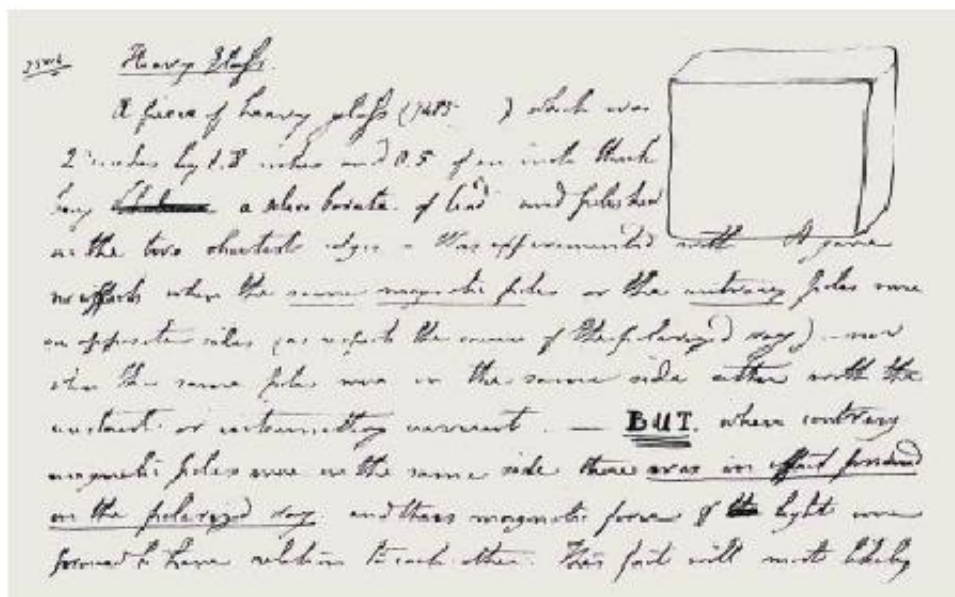 7504 Heavy Glass.
A piece of heavy glass (7485 ) which was
2 inches by 1.8 inches and 0.5 of an inch thick
being a silico borate of lead and polished
on the two shortest edges - Was experimented with It gave
no effects when the same magnetic poles or the contrary poles were
on opposite sides (as respects the course of the polarized ray) - nor
when the same poles were on the same side either with the
constant or intermitting current. — BUT. when contrary
magnetic poles were on the same side there was an effect produced
on the polarized ray and thus magnetic force & light were
proved to have relation to each other. This fact will most likely